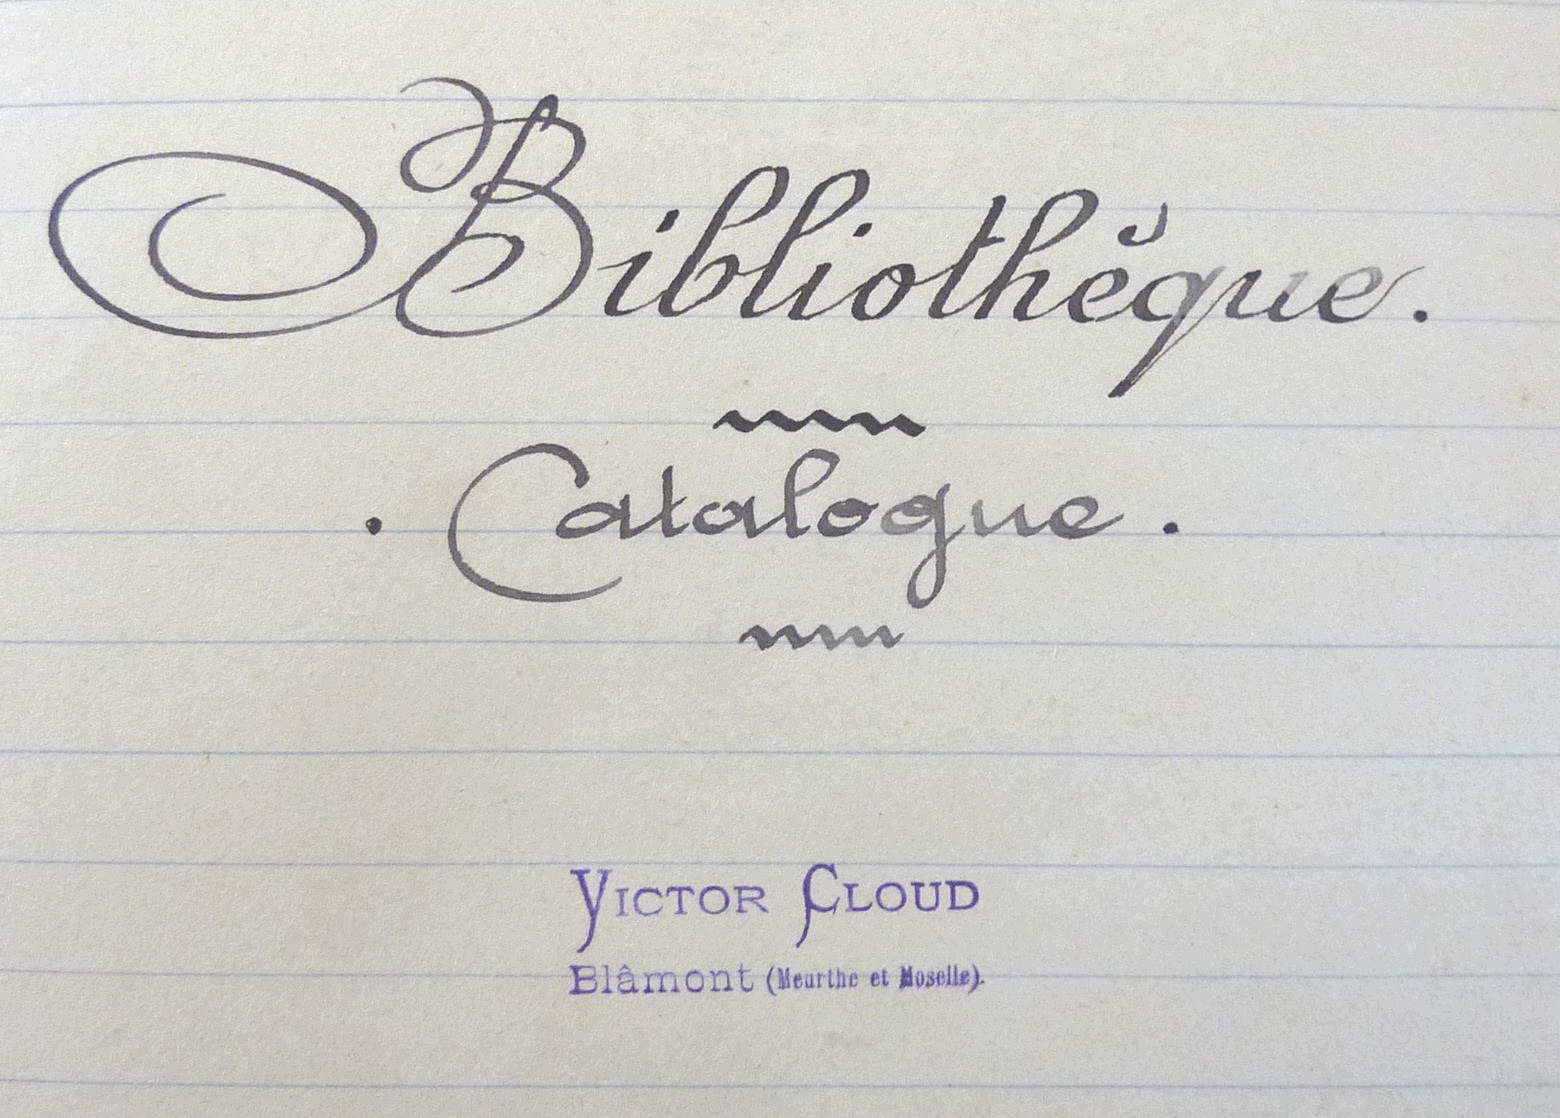 Bibliothèque.
. Catalogue .
VICTOR CLOUD
Blâmont (Meurthe et Moselle).